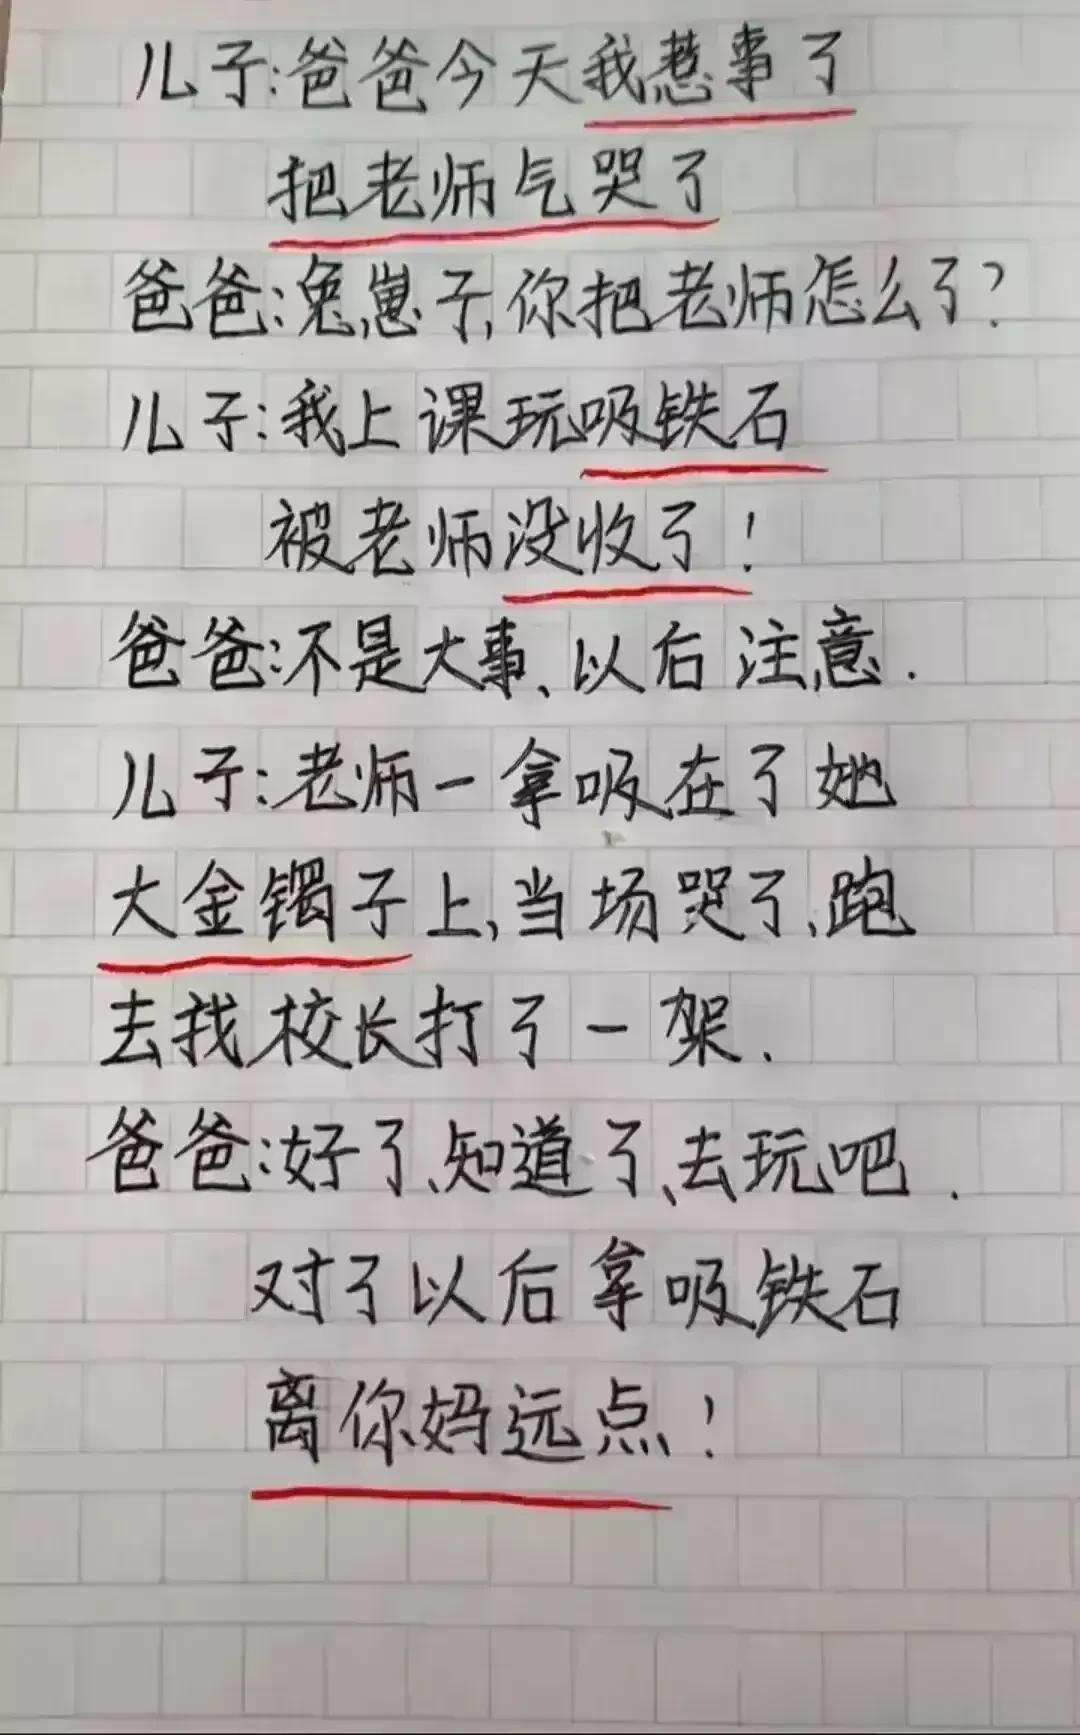 儿子:爸爸今天我惹事了
把老师气哭了
爸爸:兔崽子,你把老师怎么了?
儿子:我上课玩吸铁石
被老师没收了!
爸爸:不是大事、以后注意.
儿子:老师一拿吸在了她
大金镯子上,当场哭了、跑
去找校长打了一架.
爸爸:好了、知道了、去玩吧.
对了以后拿吸铁石
离你妈远点!